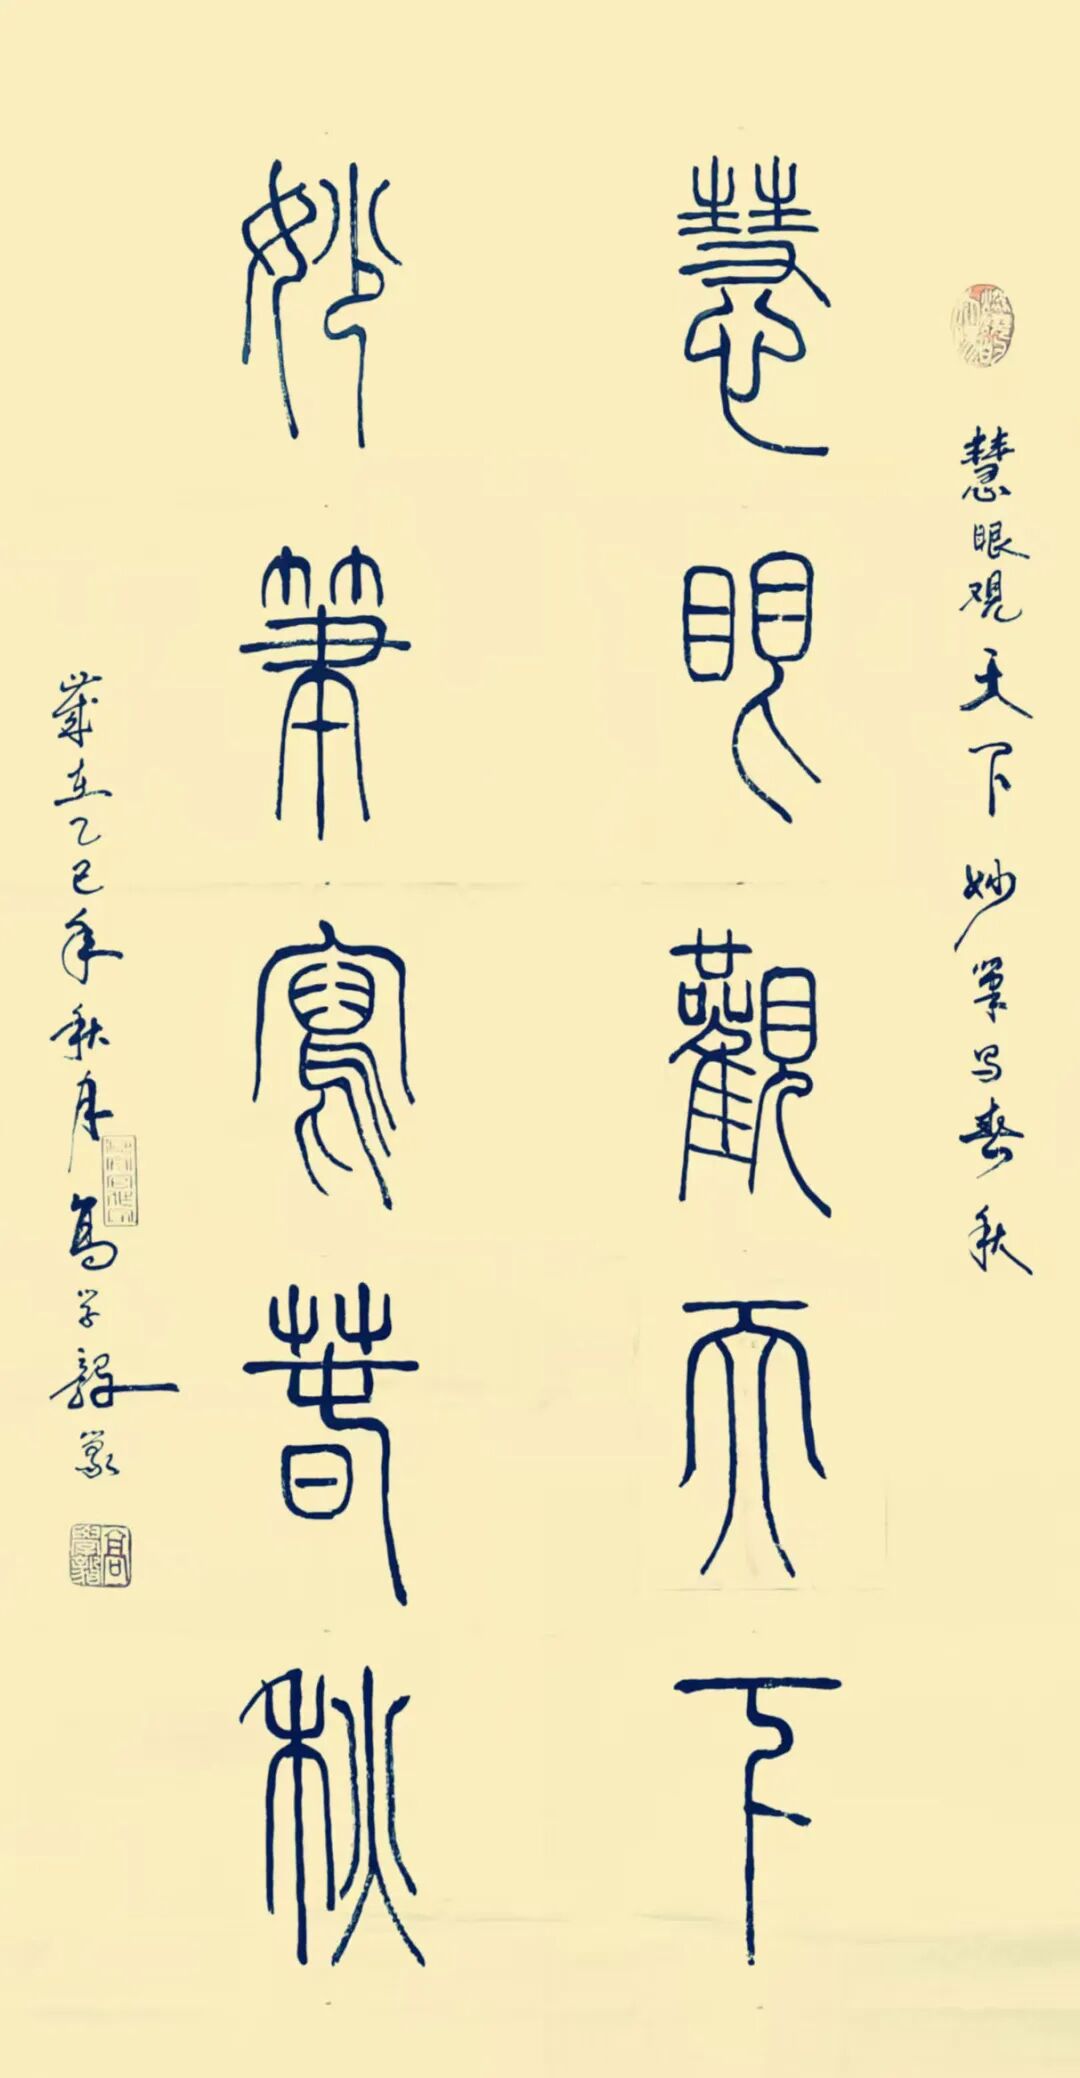 慧眼观天下妙笔写春秋
慧眼觀天下
妙筆寫萅秋
岁在乙巳年秋月高学毅篆
高學毅